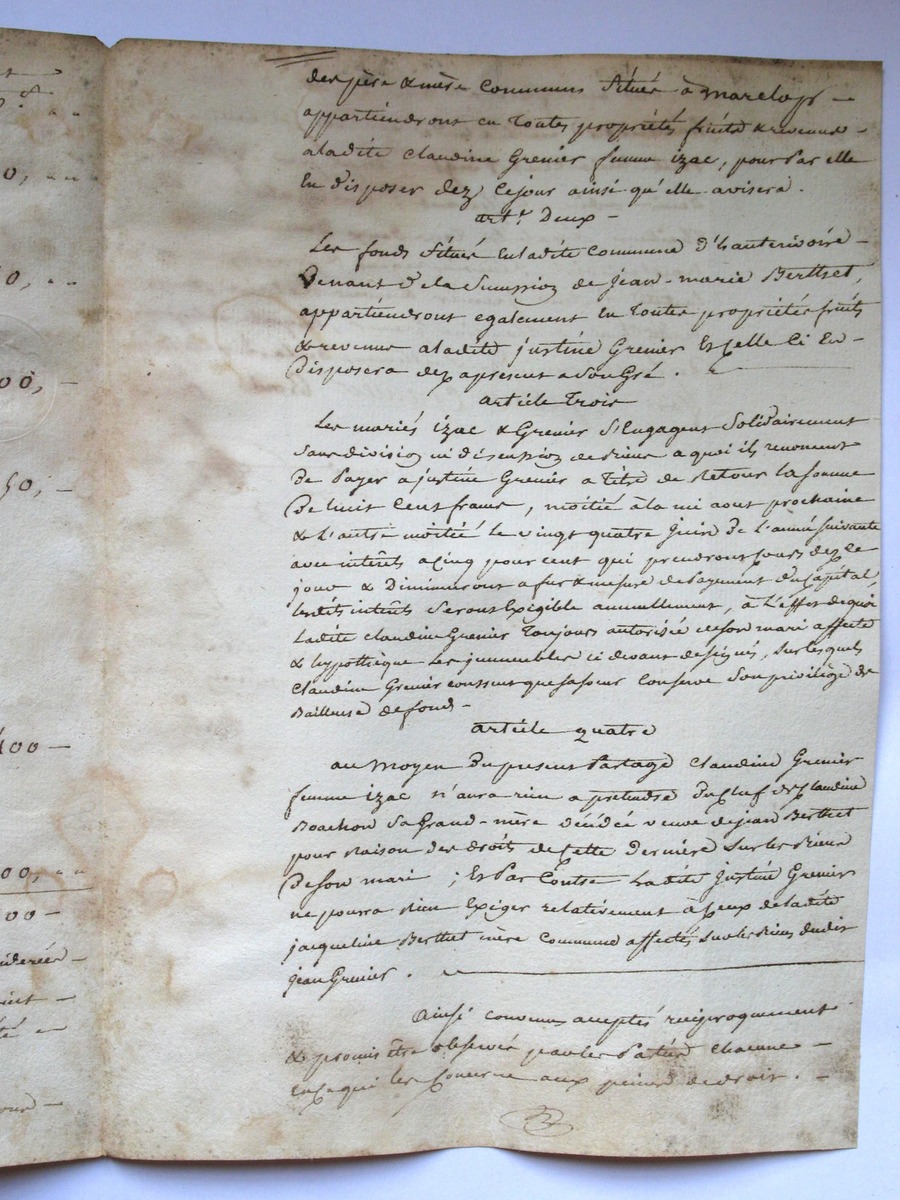 0, - -
0, - -
00, -
50, -
400 -
00, - -
00 -
sidérée -
des père & mère communs situés à marclop -
appartiendront en toutes propriétés fruits & revenus -
aladite Claudine Grenier femme izac, pour par elle
En disposer dez Cejour ainsi qu'elle avisera.
art.e Deux -
Les fonds situés Enladite Commune d'hauterivoire -
Venant de la Succession de Jean-marie Berthet,
appartiendront egalement En toutes propriétés fruits
& revenus aladite justine Grenier Et Celle Ci En -
Disposera dez apresent a Son Gré.
article Trois
Les mariés izac & Grenier S'Engagent Solidairement
Sans division ni discussion de Biens a quoi ils renoncent
De Payer a justine Grenier a titre de Retour la Somme
De huit Cent francs, moitié à la mi aout prochaine
& L'autre moitié Le vingt quatre juin De L'année Suivante
avec intérêts a Cinq pour cent qui prendront Cours dez Ce
jour & Diminueront a fur & mesure de Payement du Capital,
Lesdits intérêts Seront Exigible annuellement, à L'effet de quoi
Ladite Claudine Grenier Toujours autorisée deson mari affecte
& hypothèque Les immeubles ci devant designés, Sur lesquels
Claudine Grenier consent que sa soeur Conserve Son privilège de
Bailleuse de fond -
article quatre
au Moyen Du present Partage Claudine Grenier
femme izac n'aura rien a pretendre Du Chef de Claudine
Boachon Sa Grand-mère décédée veuve de jean Berthet
pour Raison des droits de Cette Dernière Sur les Biens
De Son mari ; Et Par Contre Ladite Justine Grenier
ne pourra Rien Exiger relativement à Ceux de ladite
jacqueline Berthet mère Commune affectés Sur les Biens dudit
jean Grenier.
Ainsi convenu accepté réciproquement
& promis être observé par les Parties Chacune -
En Ce qui les Concerne aux peines de droit. -